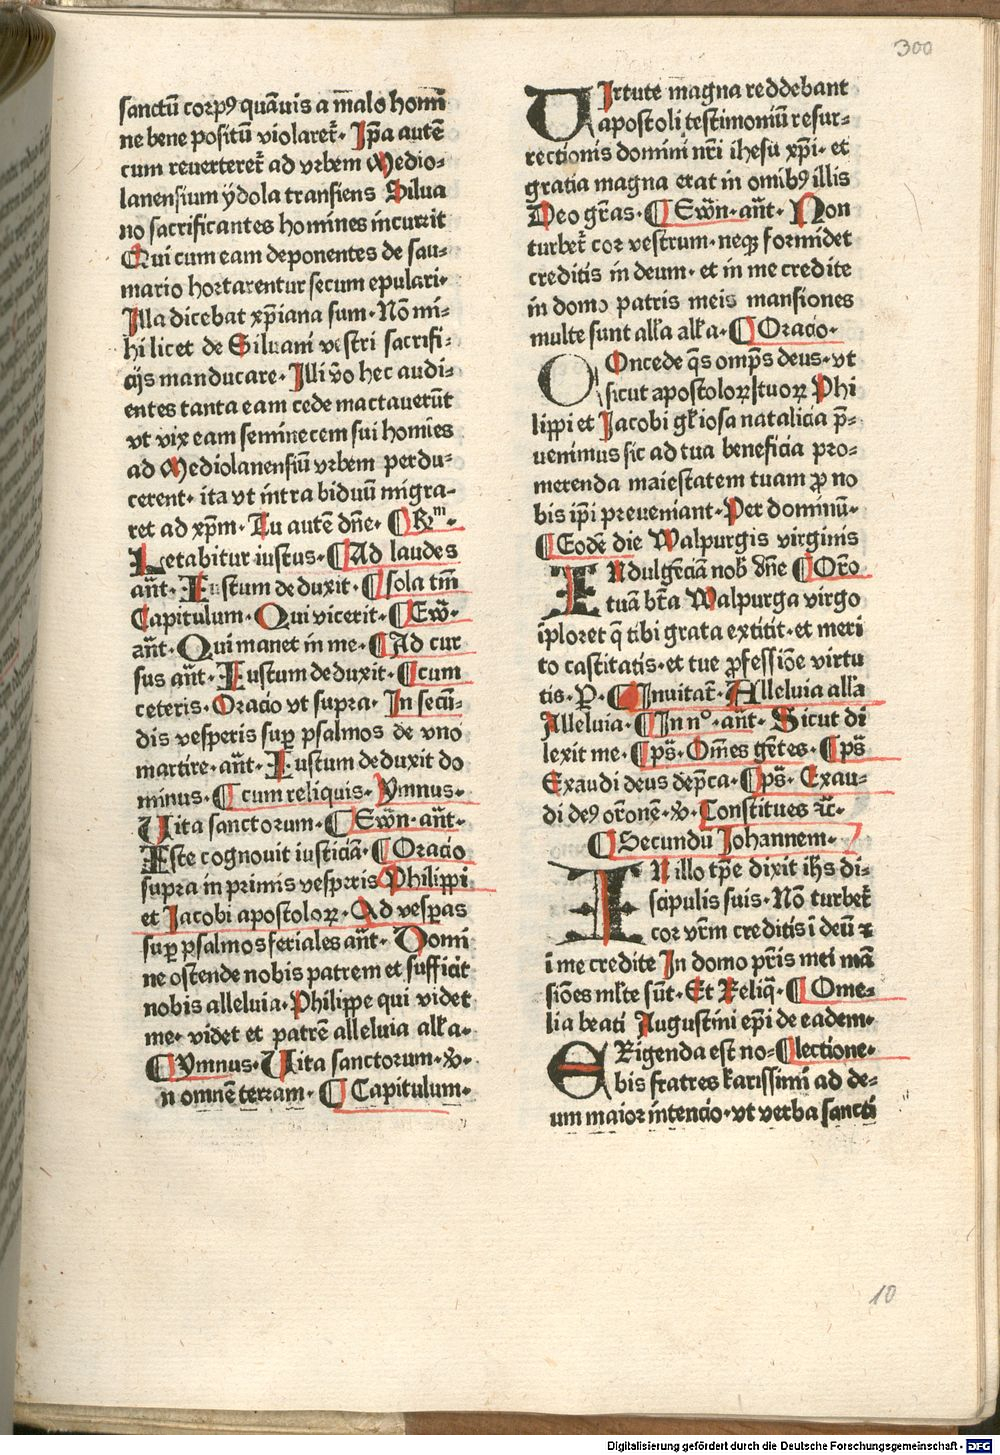 300
sanctū corpꝰ quāuis a malo homi
ne bene positū violaret᷑. Ip̄a autē
cum reuerteret᷑ ad vrbem Medio⸗
lanensium ydola transiens Silua
no sacrificantes homines incurrit
Qui cum eam deponentes de sau⸗
mario hortarentur secum epulari.
Illa dicebat xp̄iana sum. Nō mi⸗
hi licet de Siluani vestri sacrifi⸗
cijs manducare. Illi v̄o hec audi⸗
entes tanta eam cede mactauerūt
vt vix eam seminecem sui homies
ad Mediolanensiū vrbem perdu⸗
cerent. ita vt intra biduū migra⸗
ret ad xp̄m. Tu autē dn̄e. ¶ Rm.
Letabitur iustus. ¶ Ad laudes
an̄t. Iustum deduxit. ¶ sola tm̄
Capitulum. Qui vicerit. ¶ Ew̄.
an̄t. Qui manet in me. ¶ Ad cur
sus an̄t. Iustum deduxit. ¶ cum
ceteris. Oracio vt supra. In secū⸗
dis vesperis sup̱ psalmos de vno
martire. an̄t. Iustum deduxit do
minus. ¶ cum reliquis. Ymnus.
Uita sanctorum. ¶ Ew̄n. an̄t.
Iste cognouit iusticiā. ¶ Oracio
supra in primis vesperis Philippi
et Jacobi apostoloꝝ. Ad vesp̱as
sup̱ psalmos feriales an̄t. Domi
ne ostende nobis patrem et sufficit
nobis alleluia. Philippe qui videt
me. videt et patrē alleluia all̄a.
¶ Ymnus. Uita sanctorum. ℣.
n omnē terram. ¶ Capitulum.
UIrtute magna reddebant
apostoli testimoniū resur⸗
rectionis domini nr̄i ihesu xp̄i. et
gratia magna erat in omibꝰ illis
Deo gr̄as. ¶ Ew̄n. an̄t. Non
turbet᷑ cor vestrum. neqꝫ formidet
creditis in deum. et in me credite
in domo patris meis mansiones
multe sunt all̄a all̄a. ¶ Oracio.
COncede q̄s omp̄s deus. vt
sicut apostoloꝝ tuoꝝ Phi
lippi et Jacobi gl̄iosa natalicia p̄⸗
uenimus sic ad tua beneficia pro⸗
merenda maiestatem tuam ꝓ no
bis ip̄i preueniant. Per dominū.
¶ Eodē die Walpurgis virginis
INdulgēciam nob̄ dn̄e ¶ Or̄o
tuā bt̄a Walpurga virgo
iploret q̄ tibi grata extitit. et meri
to castitatis. et tue ꝓfessiōe virtu
tis. P̱. ¶ Inuitat᷑. Alleluia all̄a
Alleluia. ¶ In no. an̄t. Sicut di
lexit me. ¶ ps̄. Om̄es gētes. ¶ ps̄
Exaudi deus dep̄ca. ¶ ps̄. Exau⸗
di deꝰ or̄onē. ℣. Constitues ꝛc̄.
¶ Secundū Johannem.
IN illo tp̄e dixit ih̄s di⸗
scipulis suis. Nō turbet᷑
cor vr̄m creditis ī deū ꝛ
ī me credite In domo pr̄is mei mā
siōes ml̄te sūt. Et Reliq̄. ¶ Ome⸗
lia beati Augustini ep̄i de eadem.
ERigenda est no⸗ ¶ lectione.
bis fratres karissimi ad de⸗
um maior intencio. vt verba sancti
10
Digitalisierung gefördert durch die Deutsche Forschungsgemeinschaft - DFG